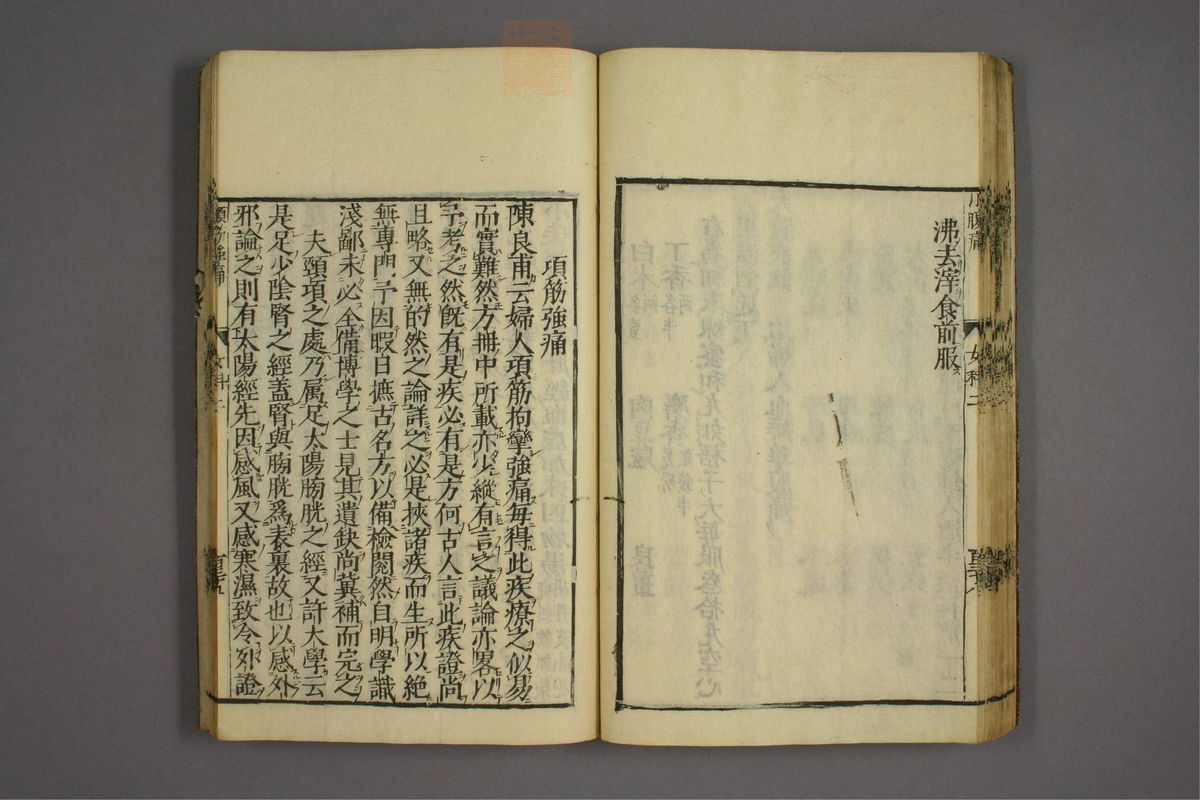 沸去滓食前服
項筋強痛
陳良甫云婦人項筋拘攣強痛每得此疾療之似易
而實難然方冊中所載亦少縱有言之議論亦畧以
予考之然旣有是疾必有是方何古人言此疾證尚
且略又無的然之論詳之必是挾諸疾而生所以絕
無專門予因暇日摭古名方以備檢閱然自明學識
淺鄙未必全備博學之士見其遺缺尚冀補而完之
夫頸項之處乃属足太陽膀胱之經又許太學云
是足少陰腎之經蓋腎與膀胱爲表裏故也以感外
邪論之則有太陽經先因感風又感寒濕致令外證
項筋強痛
女科二
小腹痛
女科二